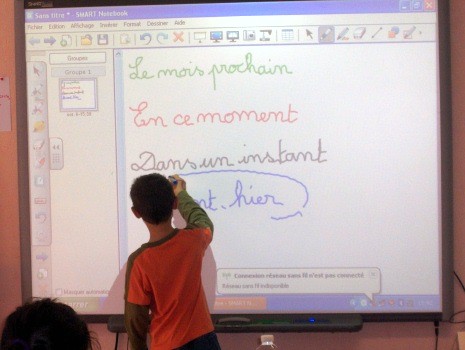 Sans titre * - SMART Notebook
Fichier Edition Affichage Insérer Format Outils
Groupes
Groupe 1
Le mois prochain
En ce moment
Dans un instant
nt-hier
Connexion réseau sans fil n'est pas connecté
Réseau sans fil indisponible